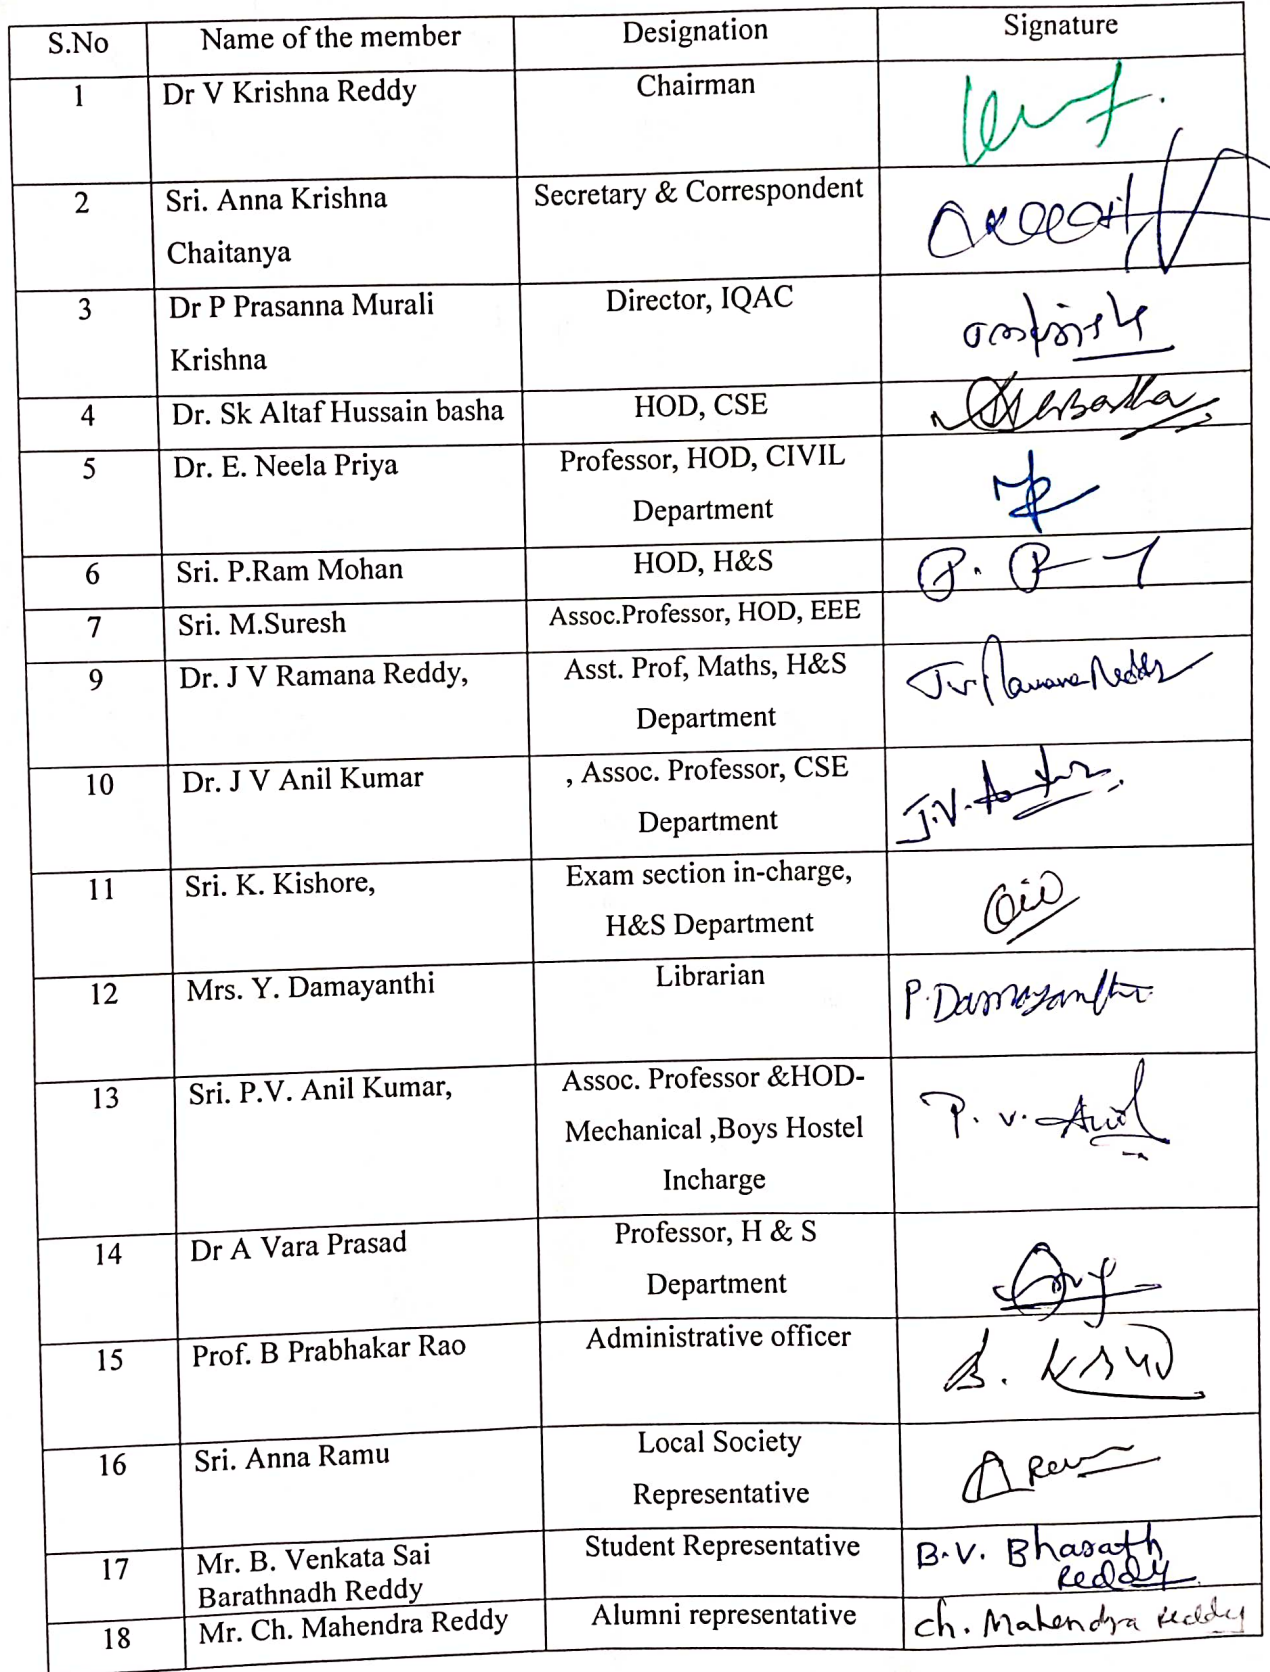 S.No Name of the member Designation Signature
1 Dr V Krishna Reddy Chairman
2 Sri. Anna Krishna Secretary & Correspondent
Chaitanya
3 Dr P Prasanna Murali Director, IQAC
Krishna
4 Dr. Sk Altaf Hussain basha HOD, CSE
5 Dr. E. Neela Priya Professor, HOD, CIVIL
Department
6 Sri. P.Ram Mohan HOD, H&S
7 Sri. M.Suresh Assoc.Professor, HOD, EEE
9 Dr. J V Ramana Reddy, Asst. Prof, Maths, H&S J.V. Ramana Reddy
Department
10 Dr. J V Anil Kumar , Assoc. Professor, CSE J.V.
Department
11 Sri. K. Kishore, Exam section in-charge,
H&S Department
12 Mrs. Y. Damayanthi Librarian P. Damayanthi
13 Sri. P.V. Anil Kumar, Assoc. Professor &HOD- P. V. Anil
Mechanical ,Boys Hostel
Incharge
14 Dr A Vara Prasad Professor, H & S
Department
15 Prof. B Prabhakar Rao Administrative officer
16 Sri. Anna Ramu Local Society
Representative
17 Mr. B. Venkata Sai Student Representative B.V. Bharath
Barathnadh Reddy Reddy
18 Mr. Ch. Mahendra Reddy Alumni representative Ch. Mahendra Reddy